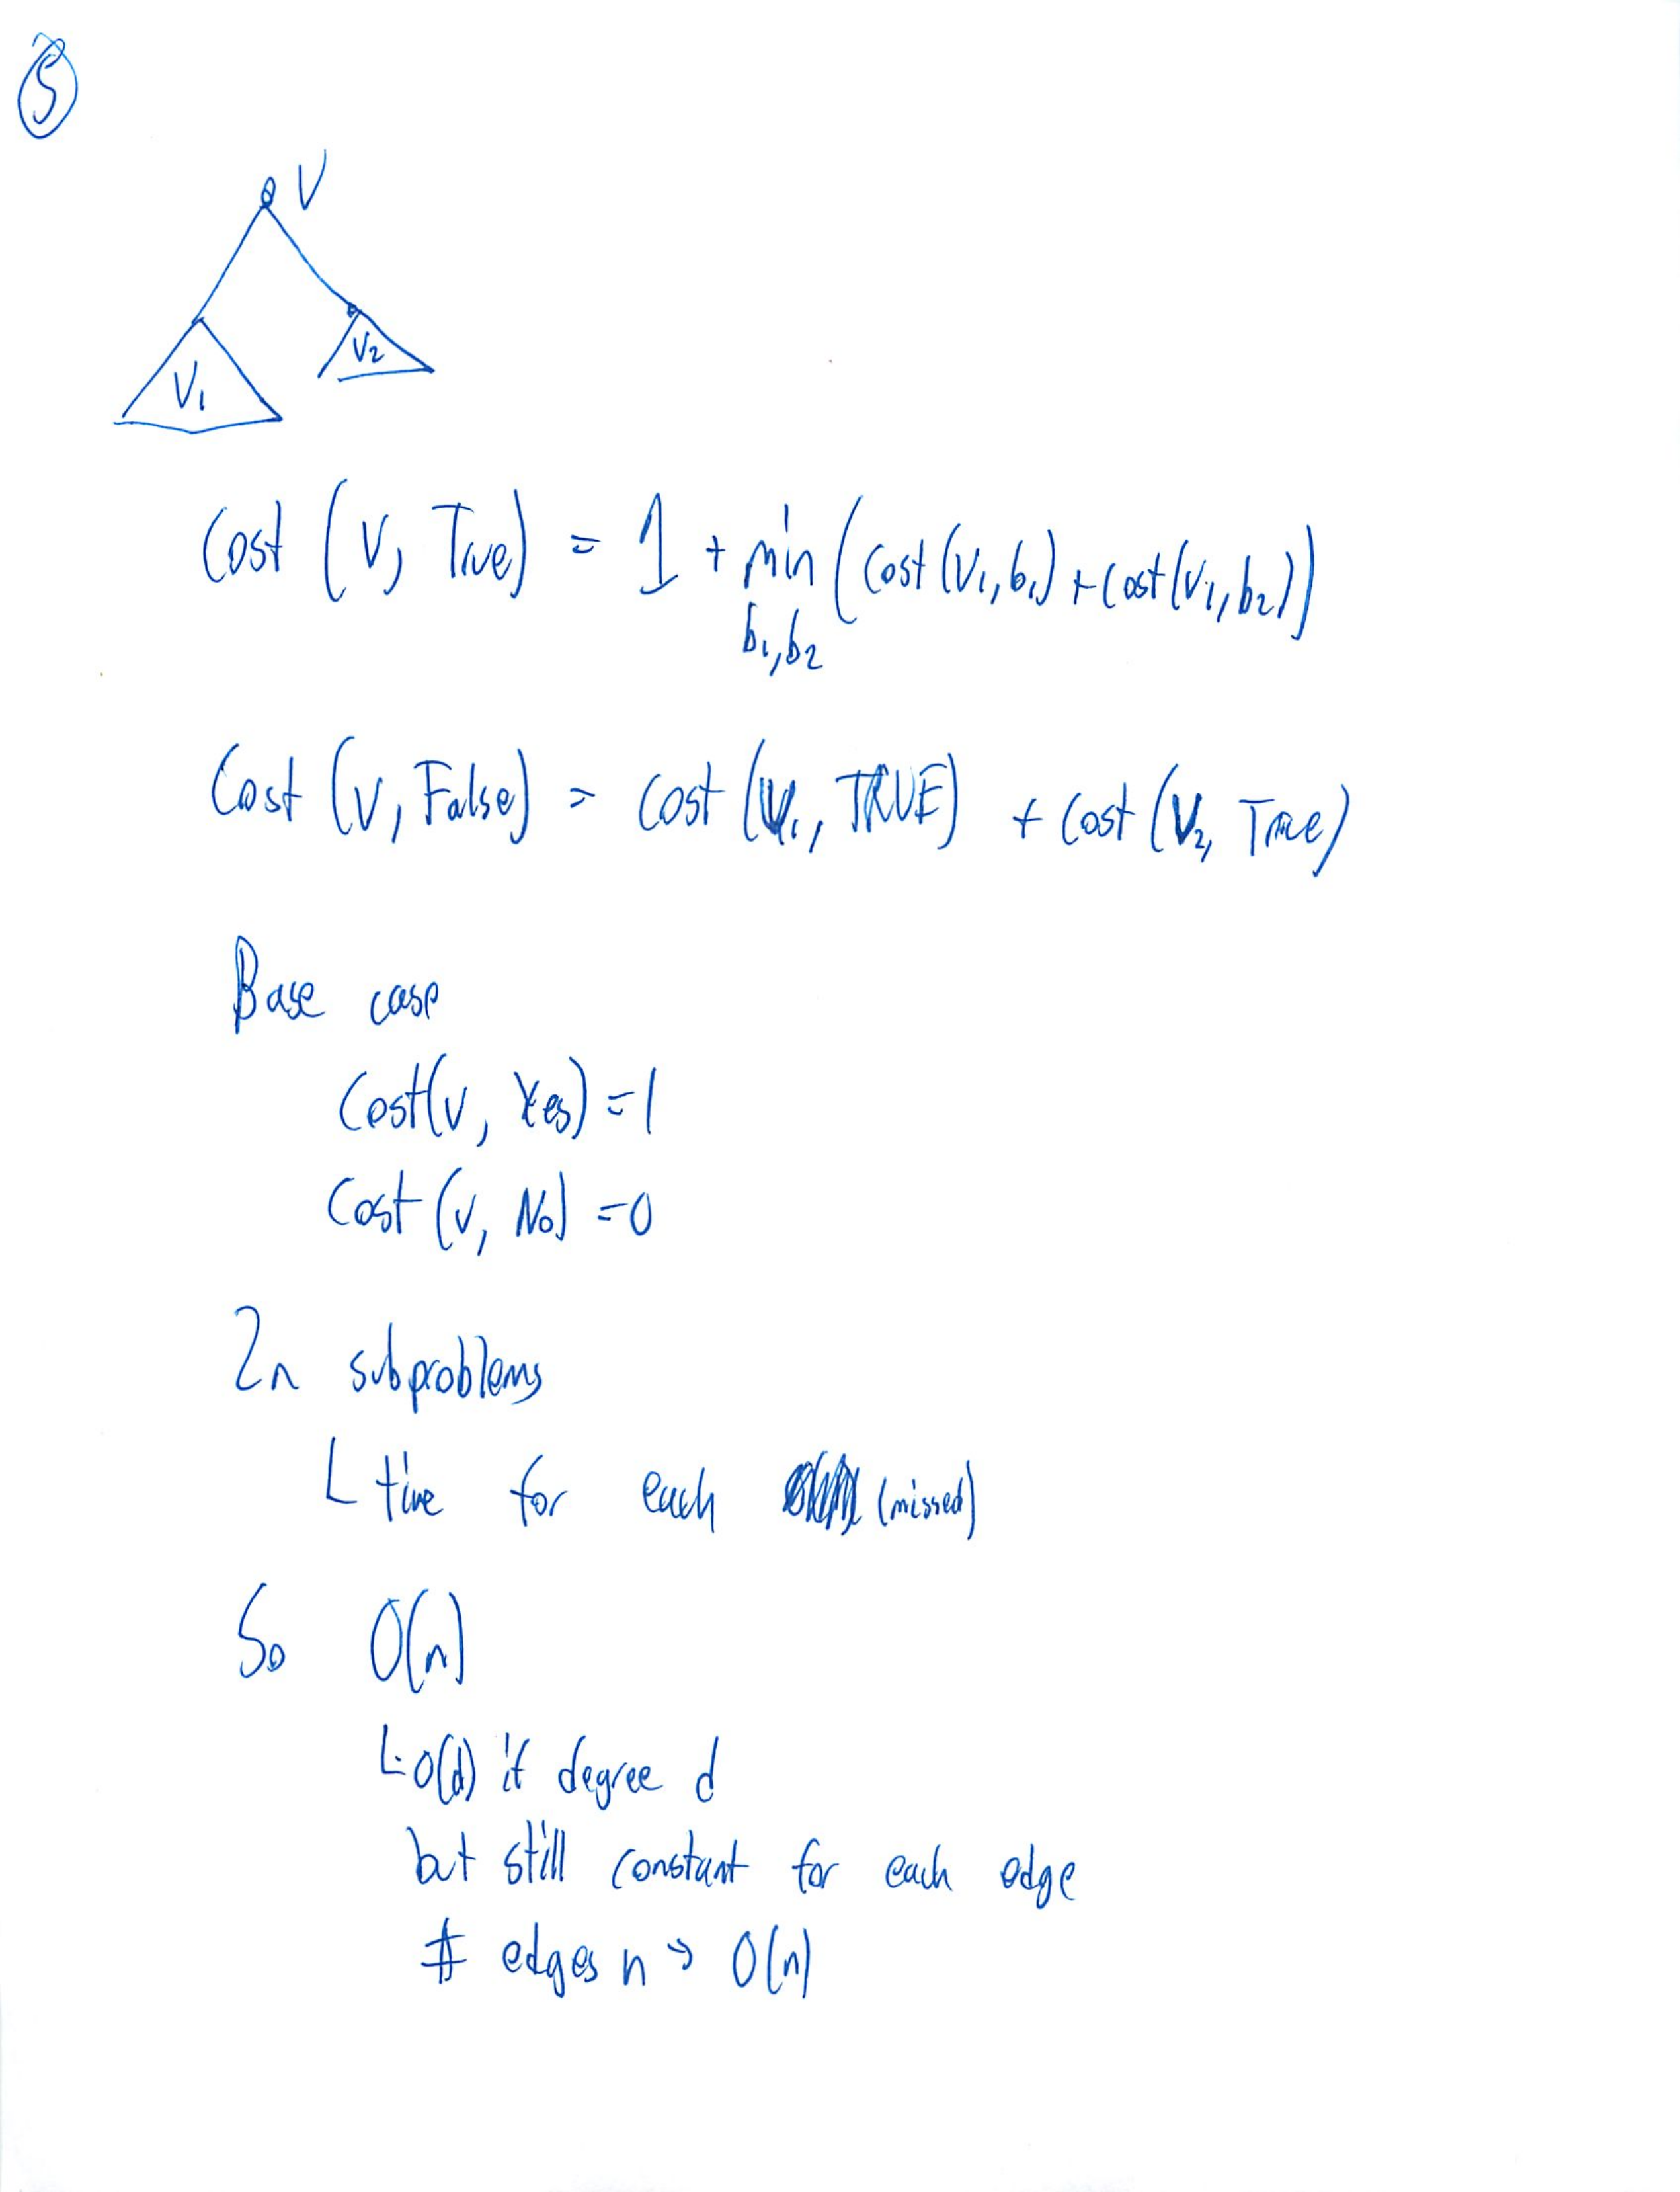 5
V
V₂
V₁
Cost (V, True) = 1 + min (Cost (V₁, b₁) + Cost (V₁, b₂))
b₁, b₂
Cost (V, False) = Cost (V₁, TRUE) + Cost (V₂, True)
Base case
Cost(v, Yes) = 1
Cost (v, No) = 0
2n subproblems
L time for each (missed)
So O(n)
L O(d) if degree d
but still constant for each edge
# edges n → O(n)